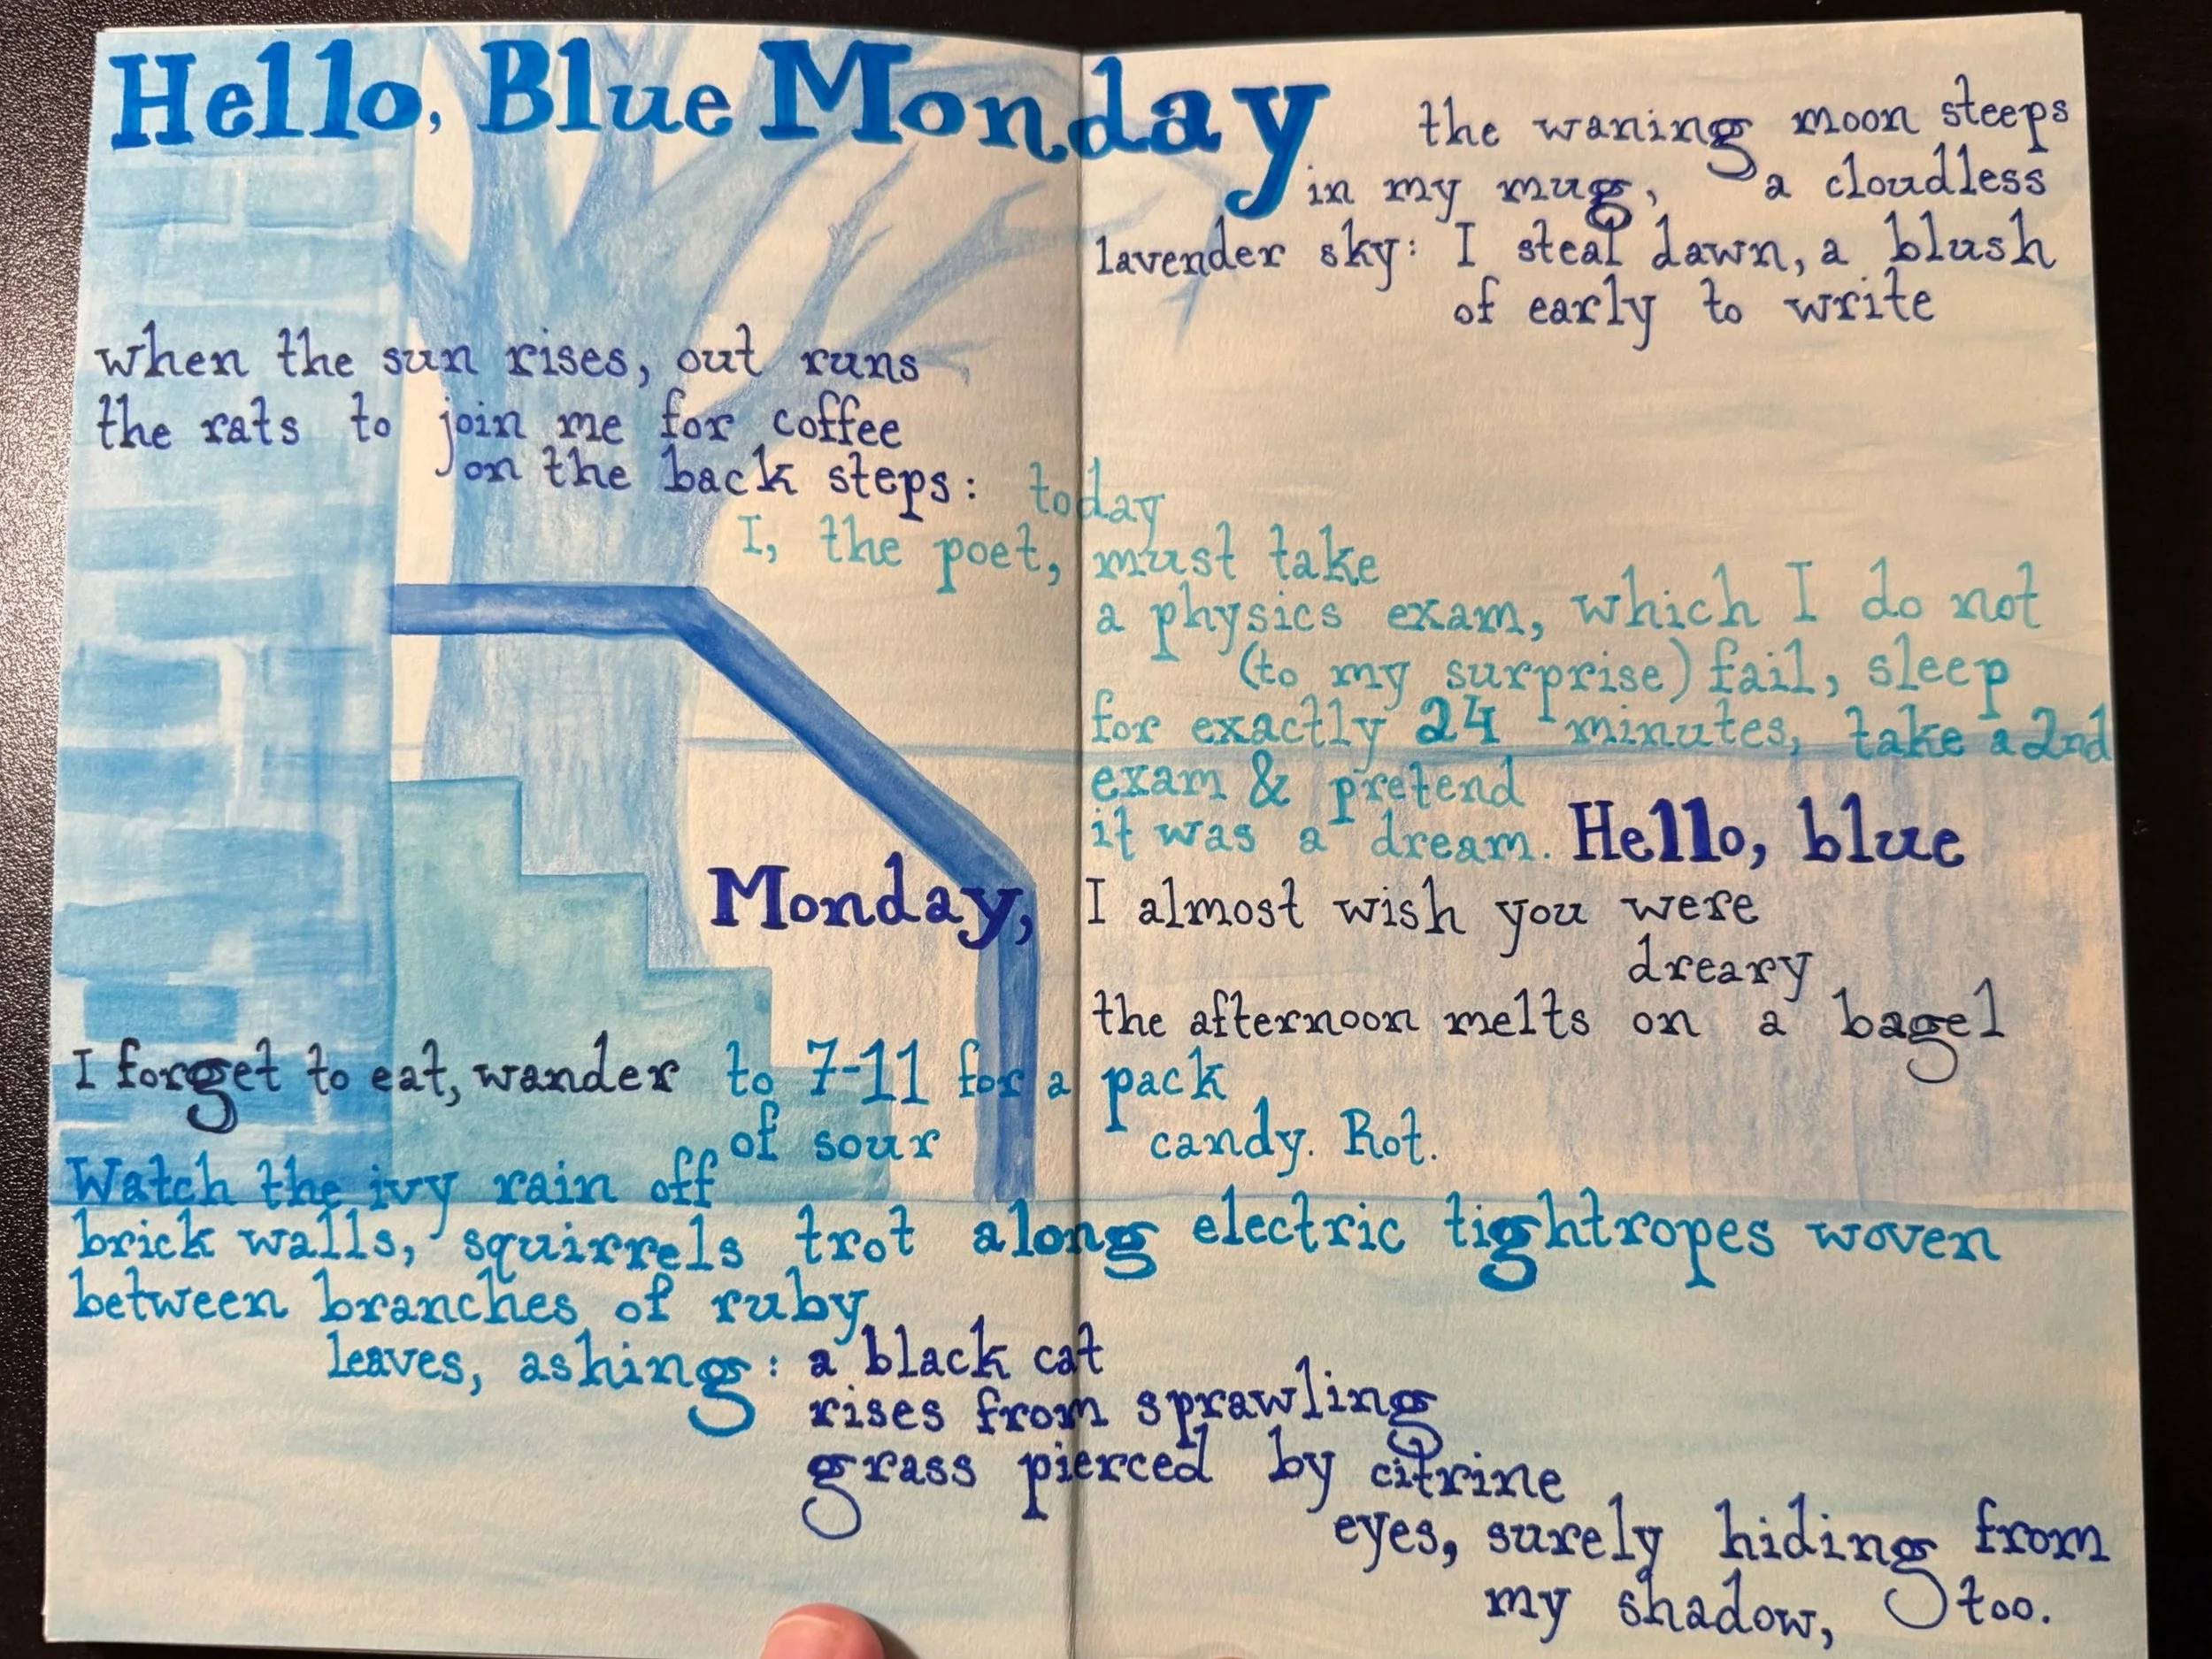 Hello, Blue Monday
the waning moon steeps
in my mug, a cloudless
lavender sky: I steal dawn, a blush
of early to write
when the sun rises, out runs
the rats to join me for coffee
on the back steps: today
I, the poet, must take
a physics exam, which I do not
(to my surprise) fail, sleep
for exactly 24 minutes, take a 2nd
exam & pretend
it was a dream. Hello, blue
Monday, I almost wish you were
dreary
the afternoon melts on a bagel
I forget to eat, wander to 7-11 for a pack
of sour candy. Rot.
Watch the ivy rain off
brick walls, squirrels trot along electric tightropes woven
between branches of ruby
leaves, ashing: a black cat
rises from sprawling
grass pierced by citrine
eyes, surely hiding from
my shadow, too.